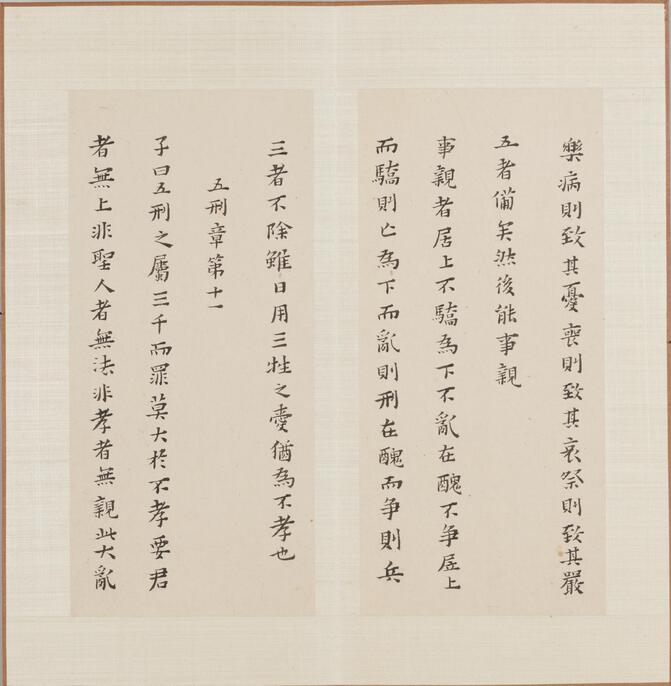 樂病則致其憂喪則致其哀祭則致其嚴
五者備矣然後能事親
事親者居上不驕為下不亂在醜不争居上
而驕則亡為下而亂則刑在醜而争則兵
三者不除雖日用三牲之養猶為不孝也
五刑章第十一
子曰五刑之屬三千而罪莫大於不孝要君
者無上非聖人者無法非孝者無親此大亂